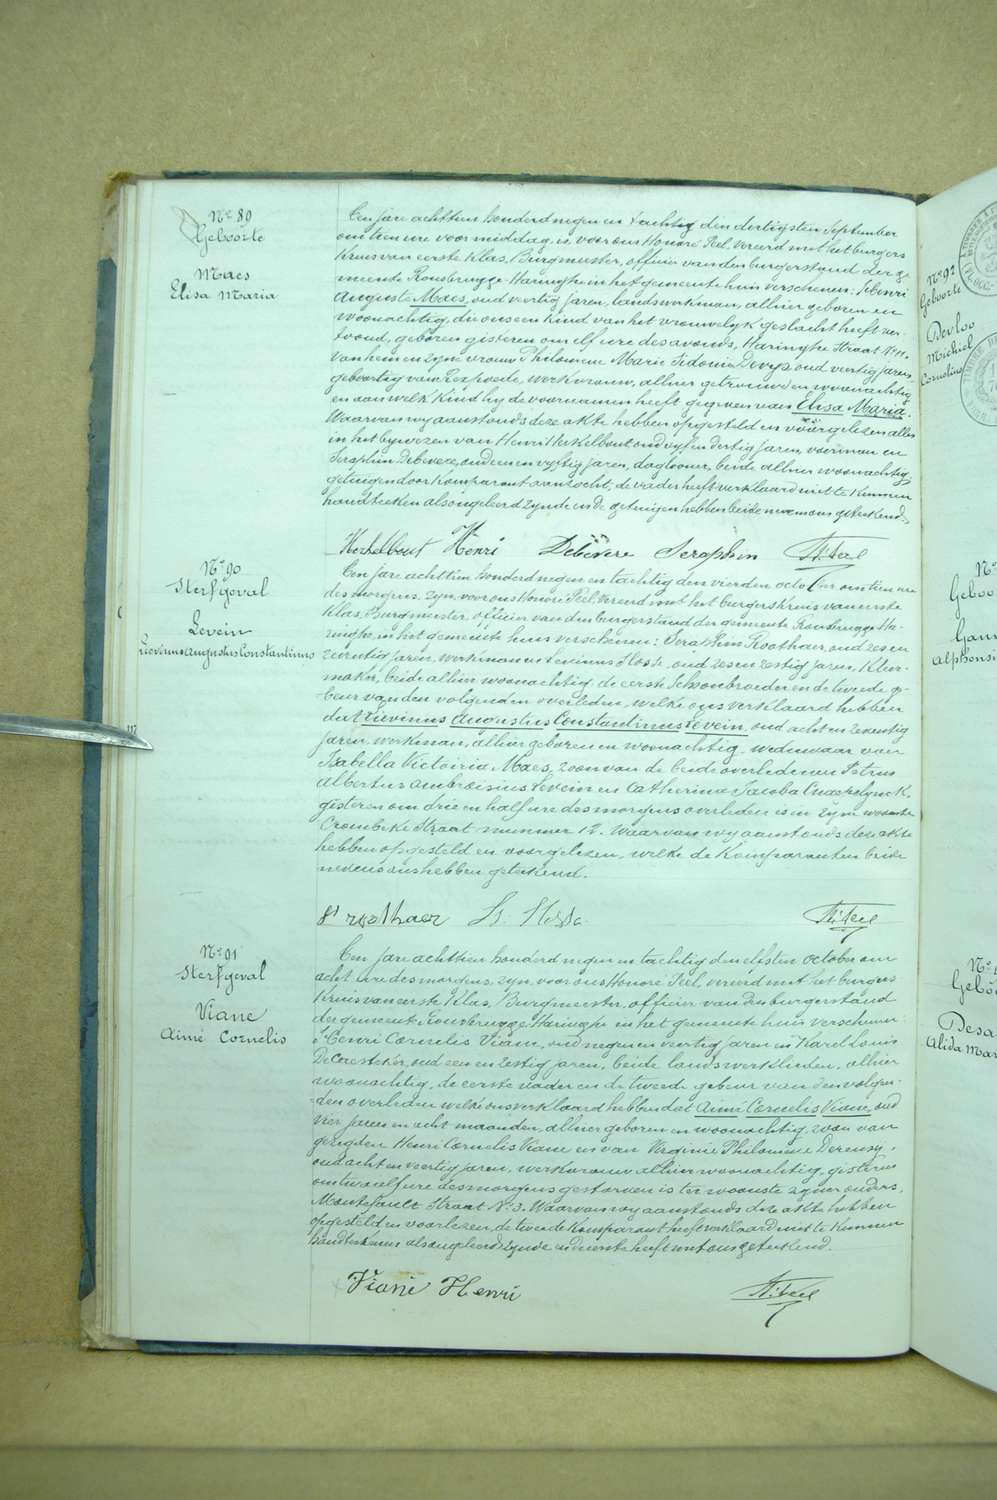 Nr 89
Geboorte
Maes
Elisa Maria
Een jare achttien honderd negen en tachtig den dertigsten September
om tien ure voormiddag, is voor ons Honoré Peel, vereerd met het burgers
Kruis van eerste klas, Burgmeester, officier van den burgerstand der ge-
meente Rousbrugge-Haringhe in het gemeente huis verschenen: Henri
Auguste Maes, oud veertig jaren, landswerkman, alhier geboren en
woonachtig, die ons een kind van het vrouwelyk geslacht heeft ver-
toond, geboren gisteren om elf ure des avonds, Haringhe Straat
van hem en zyne vrouw Philomene Marie Sidonie Devys oud veertig jaren,
geboortig van Rexpoede, werkvrouw, alhier getrouwd en woonachtig
en aan welk kind hy de voornamen heeft gegeven van Elisa Maria.
Waarvan wy aanstonds deze akte hebben opgesteld en voorgelezen alles
in het bywezen van Henri Kerkelbout, oud vyf en dertig jaren, voerman en
Seraphin Debevere, oud een en vyftig jaren, daglooner, beide alhier woonachtig,
getuigen door Komparant aanzocht, de vader heeft verklaard niet te kunnen
handteeken als ongeleerd zynde en de getuigen hebben beide nevens ons geteekend.
Kerkelbout Henri Debevere Seraphin H. Peel
Nr 90
Sterfgeval
Levein
Lievinus Augustus Constantinus
Een jare achttien honderd negen en tachtig den vierden october om tien ure
des morgens, zyn voor ons Honoré Peel, vereerd met het burgers kruis van eerste
klas, Burgmeester, officier van den burgerstand der gemeente Rousbrugge-Ha-
ringhe, in het gemeente huis verschenen: Seraphin Roothaer, oud zes en
zeventig jaren, werkman en Levinus Hoss, oud zes en zestig jaren, Kleer-
maker, beide alhier woonachtig, de eerste Schoonbroeder en de tweede ge-
beur van den volgenden overleden, welke ons verklaard hebben
dat Lievinus Augustus Constantinus Levein, oud acht en zeventig
jaren, werkman, alhier geboren en woonachtig, weduwaar van
Isabella Victoiria Maes, zoon van de beide overledenen Petrus
Albertus Ambrosius Levein en Catherina Jacoba
gisteren om drie en half ure des morgens overleden is in zyne woonste
Crombeke Straat nummer 12. Waarvan wy aanstonds deze akte
hebben opgesteld en voorgelezen, welke de Komparanten beide
nevens ons hebben geteekend.
H. Peel
Nr 91
Sterfgeval
Viane
Aimé Cornelis
Een jare achttien honderd negen en tachtig den elfsten october om
acht ure des morgens, zyn voor ons Honoré Peel, vereerd met het burgers
Kruis van eerste Klas, Burgmeester, officier van den burgerstand
der gemeente Rousbrugge-Haringhe in het gemeente huis verschenen:
Henri Cornelis Viane, oud negen en veertig jaren en Karel Louis
Deceestecker, oud een en zestig jaren, beide landswerklieden, alhier
woonachtig, de eerste vader en de tweede gebeur van den volgen-
den overleden welke ons verklaard hebben dat Aimé Cornelis Viane, oud
vier jaren en acht maanden, alhier geboren en woonachtig, zoon van
gezegden Henri Cornelis Viane en van Virginie Philomene Dereuzy,
oud acht en veertig jaren, werkvrouw alhier woonachtig, gisteren
om twaalf ure des morgens gestorven is ter woonste zyner ouders,
Straat Nr 3. Waarvan wy aanstonds deze akte hebben
opgesteld en voorlezen, de tweede Komparant heeft verklaard niet te kunnen
handteekenen als ongeleerd zynde en de eerste heeft met ons geteekend.
Viane Henri H. Peel
Nr 92
Geboorte
Devloo
Michiel
Cornelius